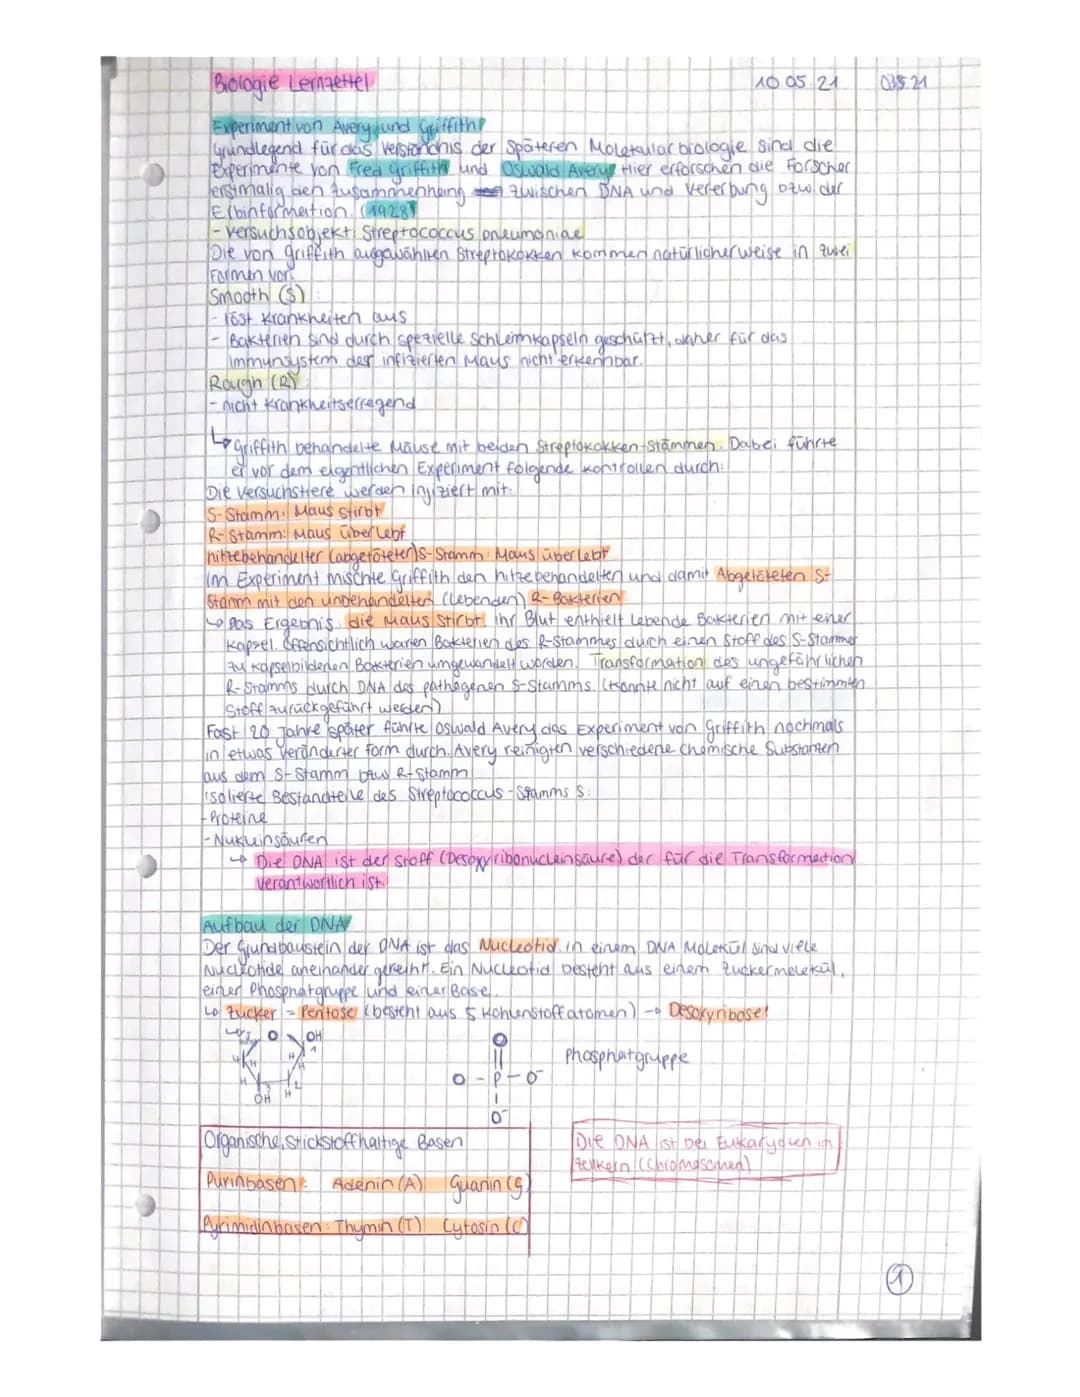 Biologie Lernzettel 10.05.21 03.5.21
Experiment von Avery und Griffith
Grundlegend für das Verständnis der späteren Molekularbiologie sind die
Experimente von Fred Griffith und Oswald Avery. Hier erforschen die Forscher
erstmalig den Zusammenhang zwischen DNA und Vererbung bzw. der
Erbinformation. (1928)
- Versuchsobjekt: Streptococcus pneumoniae
Die von Griffith ausgewählten Streptokokken kommen natürlicherweise in zwei
Formen vor:
Smooth (S):
- löst Krankheiten aus
- Bakterien sind durch spezielle Schleimkapseln geschützt, daher für das
Immunsystem der infizierten Maus nicht erkennbar.
Rough (R):
- nicht krankheitserregend
↳ Griffith behandelte Mäuse mit beiden Streptokokken-Stämmen. Dabei führte
er vor dem eigentlichen Experiment folgende Kontrollen durch:
Die Versuchstiere werden injiziert mit:
S-Stamm: Maus stirbt
R-Stamm: Maus überlebt
hitzebehandelter (abgetöteter) S-Stamm: Maus überlebt
Im Experiment mischte Griffith den hitzebehandelten und damit Abgetöteten S-
Stamm mit den unbehandelten (lebenden) R-Bakterien
↳ Das Ergebnis: die Maus stirbt. Ihr Blut enthielt lebende Bakterien mit einer
Kapsel. Offensichtlich waren Bakterien des R-Stammes durch einen Stoff des S-Stammes
zu kapselbildenen Bakterien umgewandelt worden. Transformation des ungefährlichen
R-Stamms durch DNA des pathogenen S-Stamms. (konnte nicht auf einen bestimmten
Stoff zurückgeführt werden)
Fast 20 Jahre später führte Oswald Avery das Experiment von Griffith nochmals
in etwas veränderter Form durch. Avery reinigten verschiedene chemische Substanzen
aus dem S-Stamm bzw R-Stamm
isolierte Bestandteile des Streptococcus-Stamms S:
- Proteine
- Nukleinsäuren
→ Die DNA ist der Stoff (Desoxyribonucleinsäure) der für die Transformation
verantwortlich ist.
Aufbau der DNA
Der Grundbaustein der DNA ist das Nucleotid. in einem DNA Molekül sind viele
Nucleotide aneinander gereiht. Ein Nucleotid besteht aus einem Zuckermolekül,
einer Phosphatgruppe und einer Base.
↳ Zucker = Pentose (besteht aus 5 Kohlenstoffatomen) → Desoxyribose!
O OH
4 H H H 1
H 3 2
OH H
O
||
O - P - O⁻
|
O⁻
Phosphatgruppe
Organische, stickstoffhaltige Basen
Purinbasen: Adenin (A) Guanin (G)
Pyrimidinbasen: Thymin (T) Cytosin (C)
Die DNA ist bei Eukaryoten im
Zellkern (Chromosomen)
1